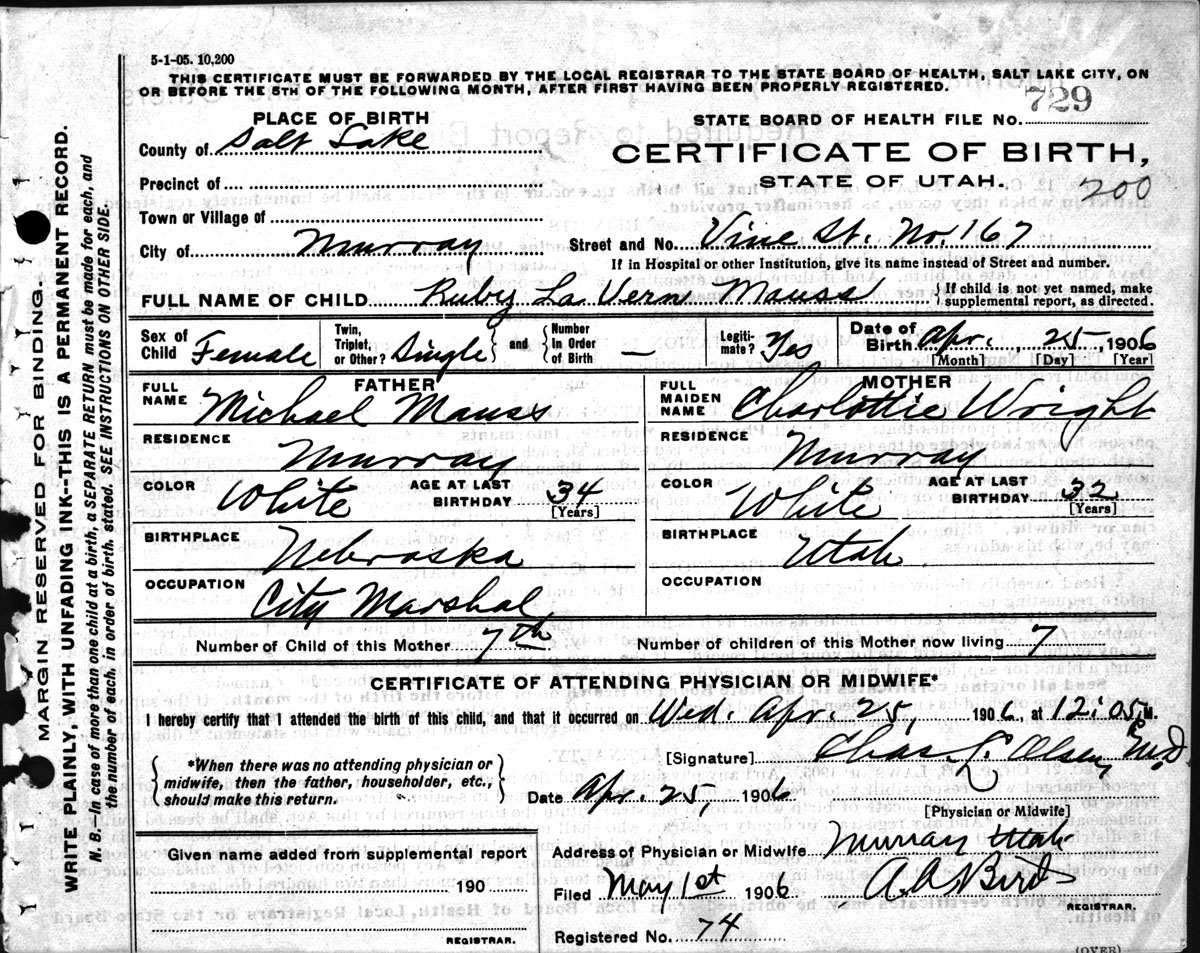 5-1-05. 10,200
THIS CERTIFICATE MUST BE FORWARDED BY THE LOCAL REGISTRAR TO THE STATE BOARD OF HEALTH, SALT LAKE CITY, ON
OR BEFORE THE 5TH OF THE FOLLOWING MONTH, AFTER FIRST HAVING BEEN PROPERLY REGISTERED.
729
PLACE OF BIRTH
STATE BOARD OF HEALTH FILE NO.
County of Salt Lake
CERTIFICATE OF BIRTH,
Precinct of
STATE OF UTAH.
200
Town or Village of
City of Murray
Street and No. Vine St. No. 167
If in Hospital or other Institution, give its name instead of Street and number.
FULL NAME OF CHILD Ruby La Vern Mauss
{ If child is not yet named, make
supplemental report, as directed.
Sex of Child Female
Twin, Triplet, or Other? Single } and { Number In Order of Birth —
Legiti-mate? Yes
Date of Birth Apr. , 25 , 1906
[Month] [Day] [Year]
FATHER
FULL NAME Michael Mauss
RESIDENCE Murray
COLOR White
AGE AT LAST BIRTHDAY 34
[Years]
BIRTHPLACE Nebraska
OCCUPATION City Marshal
MOTHER
FULL MAIDEN NAME Charlottie Wright
RESIDENCE Murray
COLOR White
AGE AT LAST BIRTHDAY 32
[Years]
BIRTHPLACE Utah
OCCUPATION
Number of Child of this Mother 7th
Number of children of this Mother now living 7
CERTIFICATE OF ATTENDING PHYSICIAN OR MIDWIFE*
I hereby certify that I attended the birth of this child, and that it occurred on Wed. Apr. 25, 1906, at 12:05 P M.
[Signature] Chas. L. Olsen, M.D
{ *When there was no attending physician or
midwife, then the father, householder, etc.,
should make this return. }
Date Apr. 25, 1906
[Physician or Midwife]
Given name added from supplemental report
190
REGISTRAR.
Address of Physician or Midwife Murray Utah
Filed May 1st 1906 A A Bird
REGISTRAR.
Registered No. 74
(OVER)
MARGIN RESERVED FOR BINDING.
WRITE PLAINLY, WITH UNFADING INK--THIS IS A PERMANENT RECORD.
N. B.—In case of more than one child at a birth, a SEPARATE RETURN must be made for each, and
the number of each, in order of birth, stated. SEE INSTRUCTIONS ON OTHER SIDE.